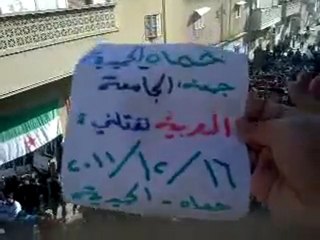 حماه
جمعة: الجامعة
العربية تقتلنا
٢٠١١/١٢/١٦
حماه -